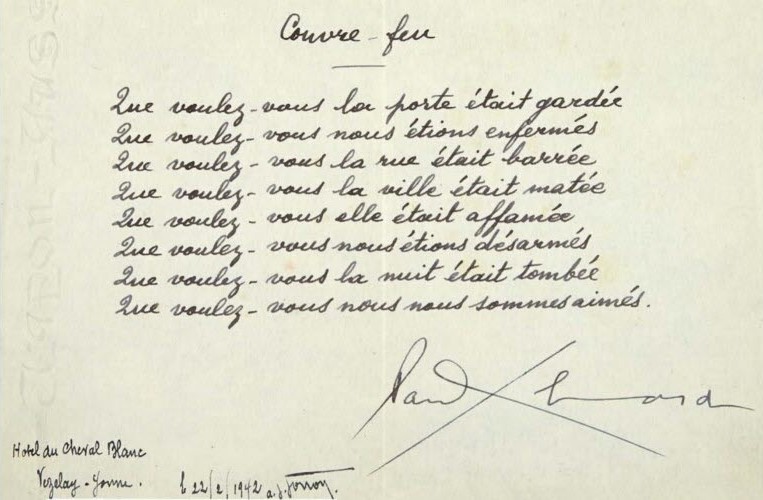 Couvre-feu
Que voulez-vous la porte était gardée
Que voulez-vous nous étions enfermés
Que voulez-vous la rue était barrée
Que voulez-vous la ville était matée
Que voulez-vous elle était affamée
Que voulez-vous nous étions désarmés
Que voulez-vous la nuit était tombée
Que voulez-vous nous nous sommes aimés.
Paul Eluard
Hotel du Cheval Blanc
Vezelay - Yonne.
le 22/2/1942